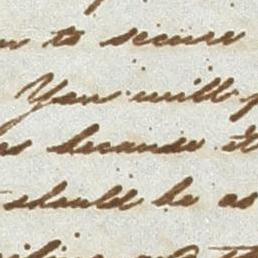 to secure
You will
because it
should be as